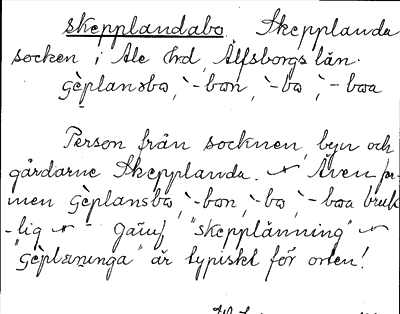 skepplandabo Skepplanda
socken i Ale hrd, Älfsborgs län.
Gèplansbo, `-bon, `-bo, `-boa
Person från socknen, byn och
gårdarne Skepplanda. Även for-
men Gèplansbo, `-bon, `-bo, `-boa bruk
-lig "skepplänning"
är typiskt för orten!